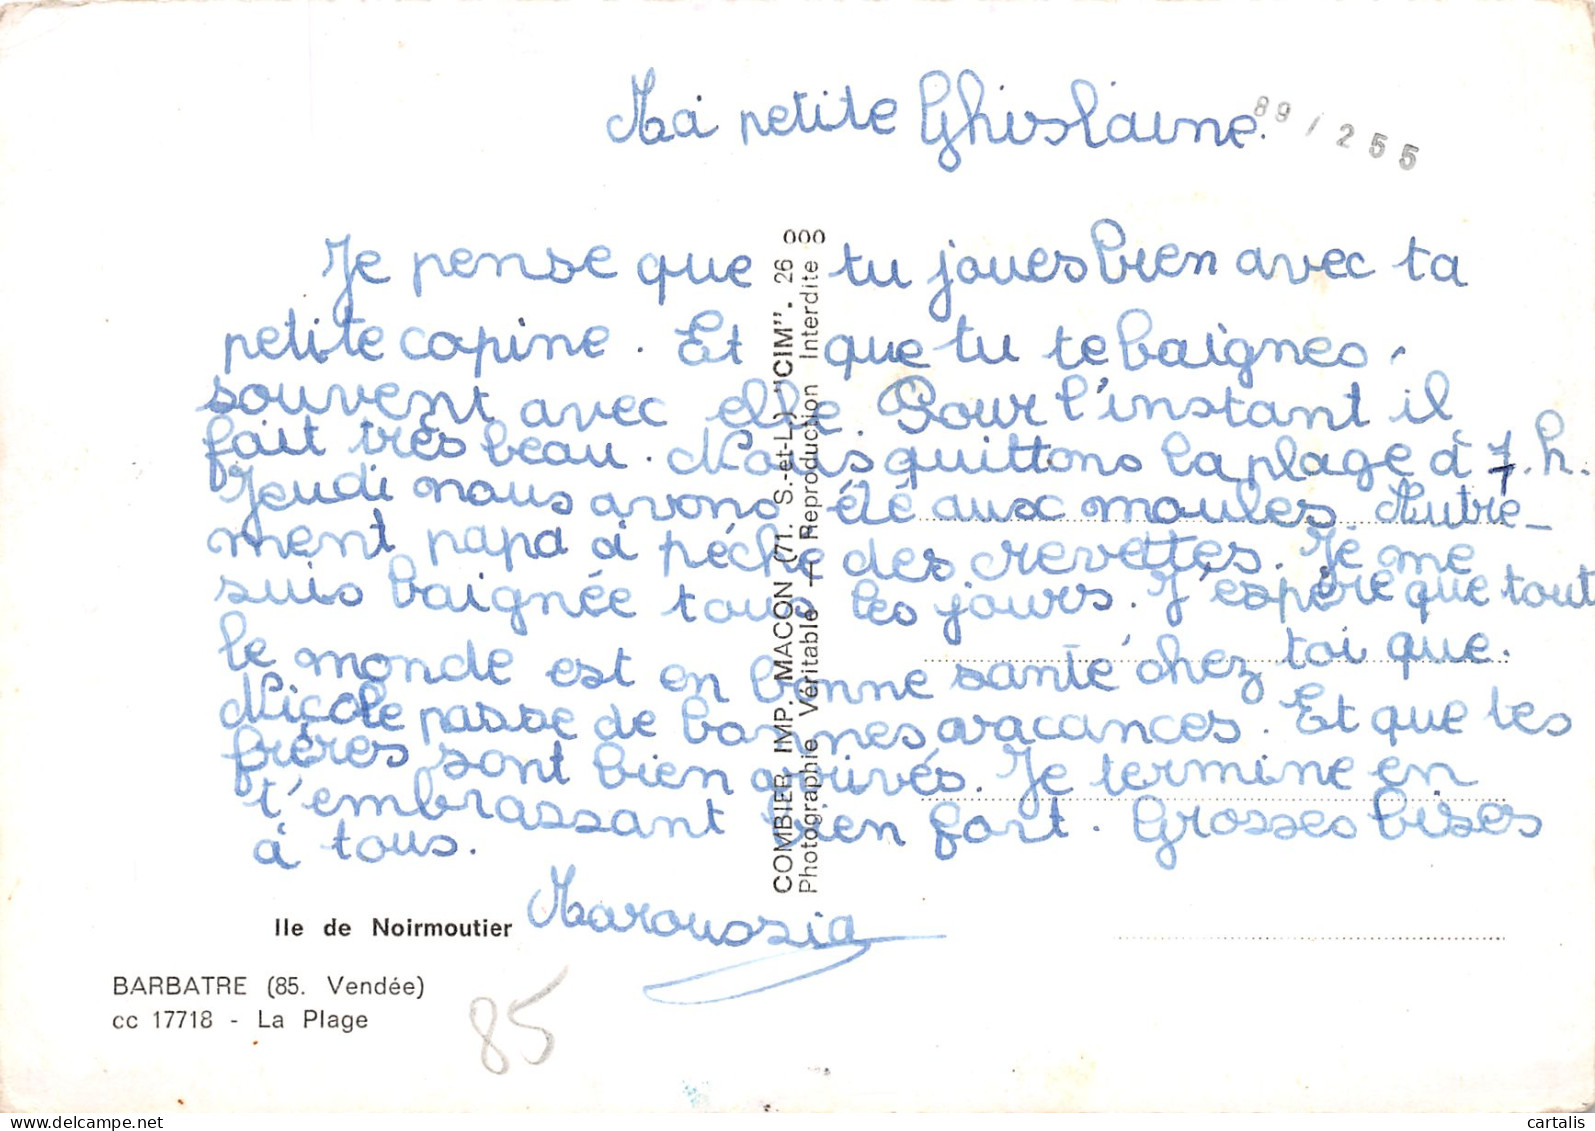 Ma petite Ghislaine.
89 / 255
Je pense que tu joues bien avec ta
petite copine. Et que tu te baignes
souvent avec elle. Pour l'instant il
fait très beau. Nous quittons la plage à 7.h.
Jeudi nous avons été aux moules. Autre_
ment papa a péché des crevettes. Je me
suis baignée tous les jours. J'espère que tout
le monde est en bonne santé chez toi que.
Nicole passe de bonnes vacances. Et que tes
frères sont bien arrivés. Je termine en
t'embrassant bien fort. Grosses bises
à tous.
Maroussia
COMBIER IMP. MACON (71. S.-et-L.) "CIM". 26
Photographie Véritable - Reproduction Interdite
Ile de Noirmoutier
BARBATRE (85. Vendée)
cc 17718 - La Plage
85
cartalis
www.delcampe.net